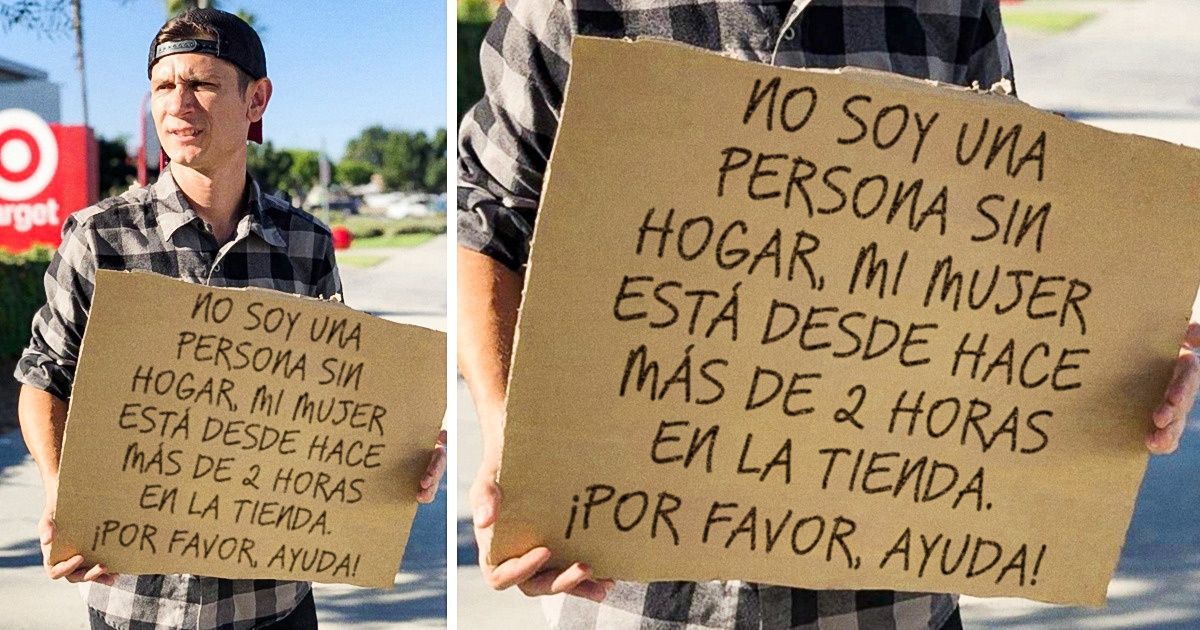 arget
NO SOY UNA
PERSONA SIN
HOGAR, MI MUJER
ESTÁ DESDE HACE
MÁS DE 2 HORAS
EN LA TIENDA.
¡POR FAVOR, AYUDA!
NO SOY UNA
PERSONA SIN
HOGAR, MI MUJER
ESTÁ DESDE HACE
MÁS DE 2 HORAS
EN LA TIENDA.
¡POR FAVOR, AYUDA!